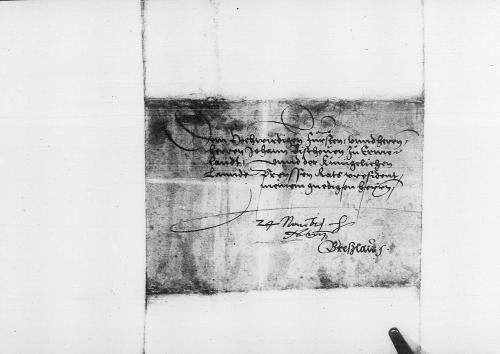 Dem Hochwirdigen Fürsten, vnnd herrn,
herren Johann Bischouen zu Erme-
landt, vnnd der Künigelichen
Lannde Preussen Rats president,
meinem gnedigen herrn
24 Nouembris
Breßlaw